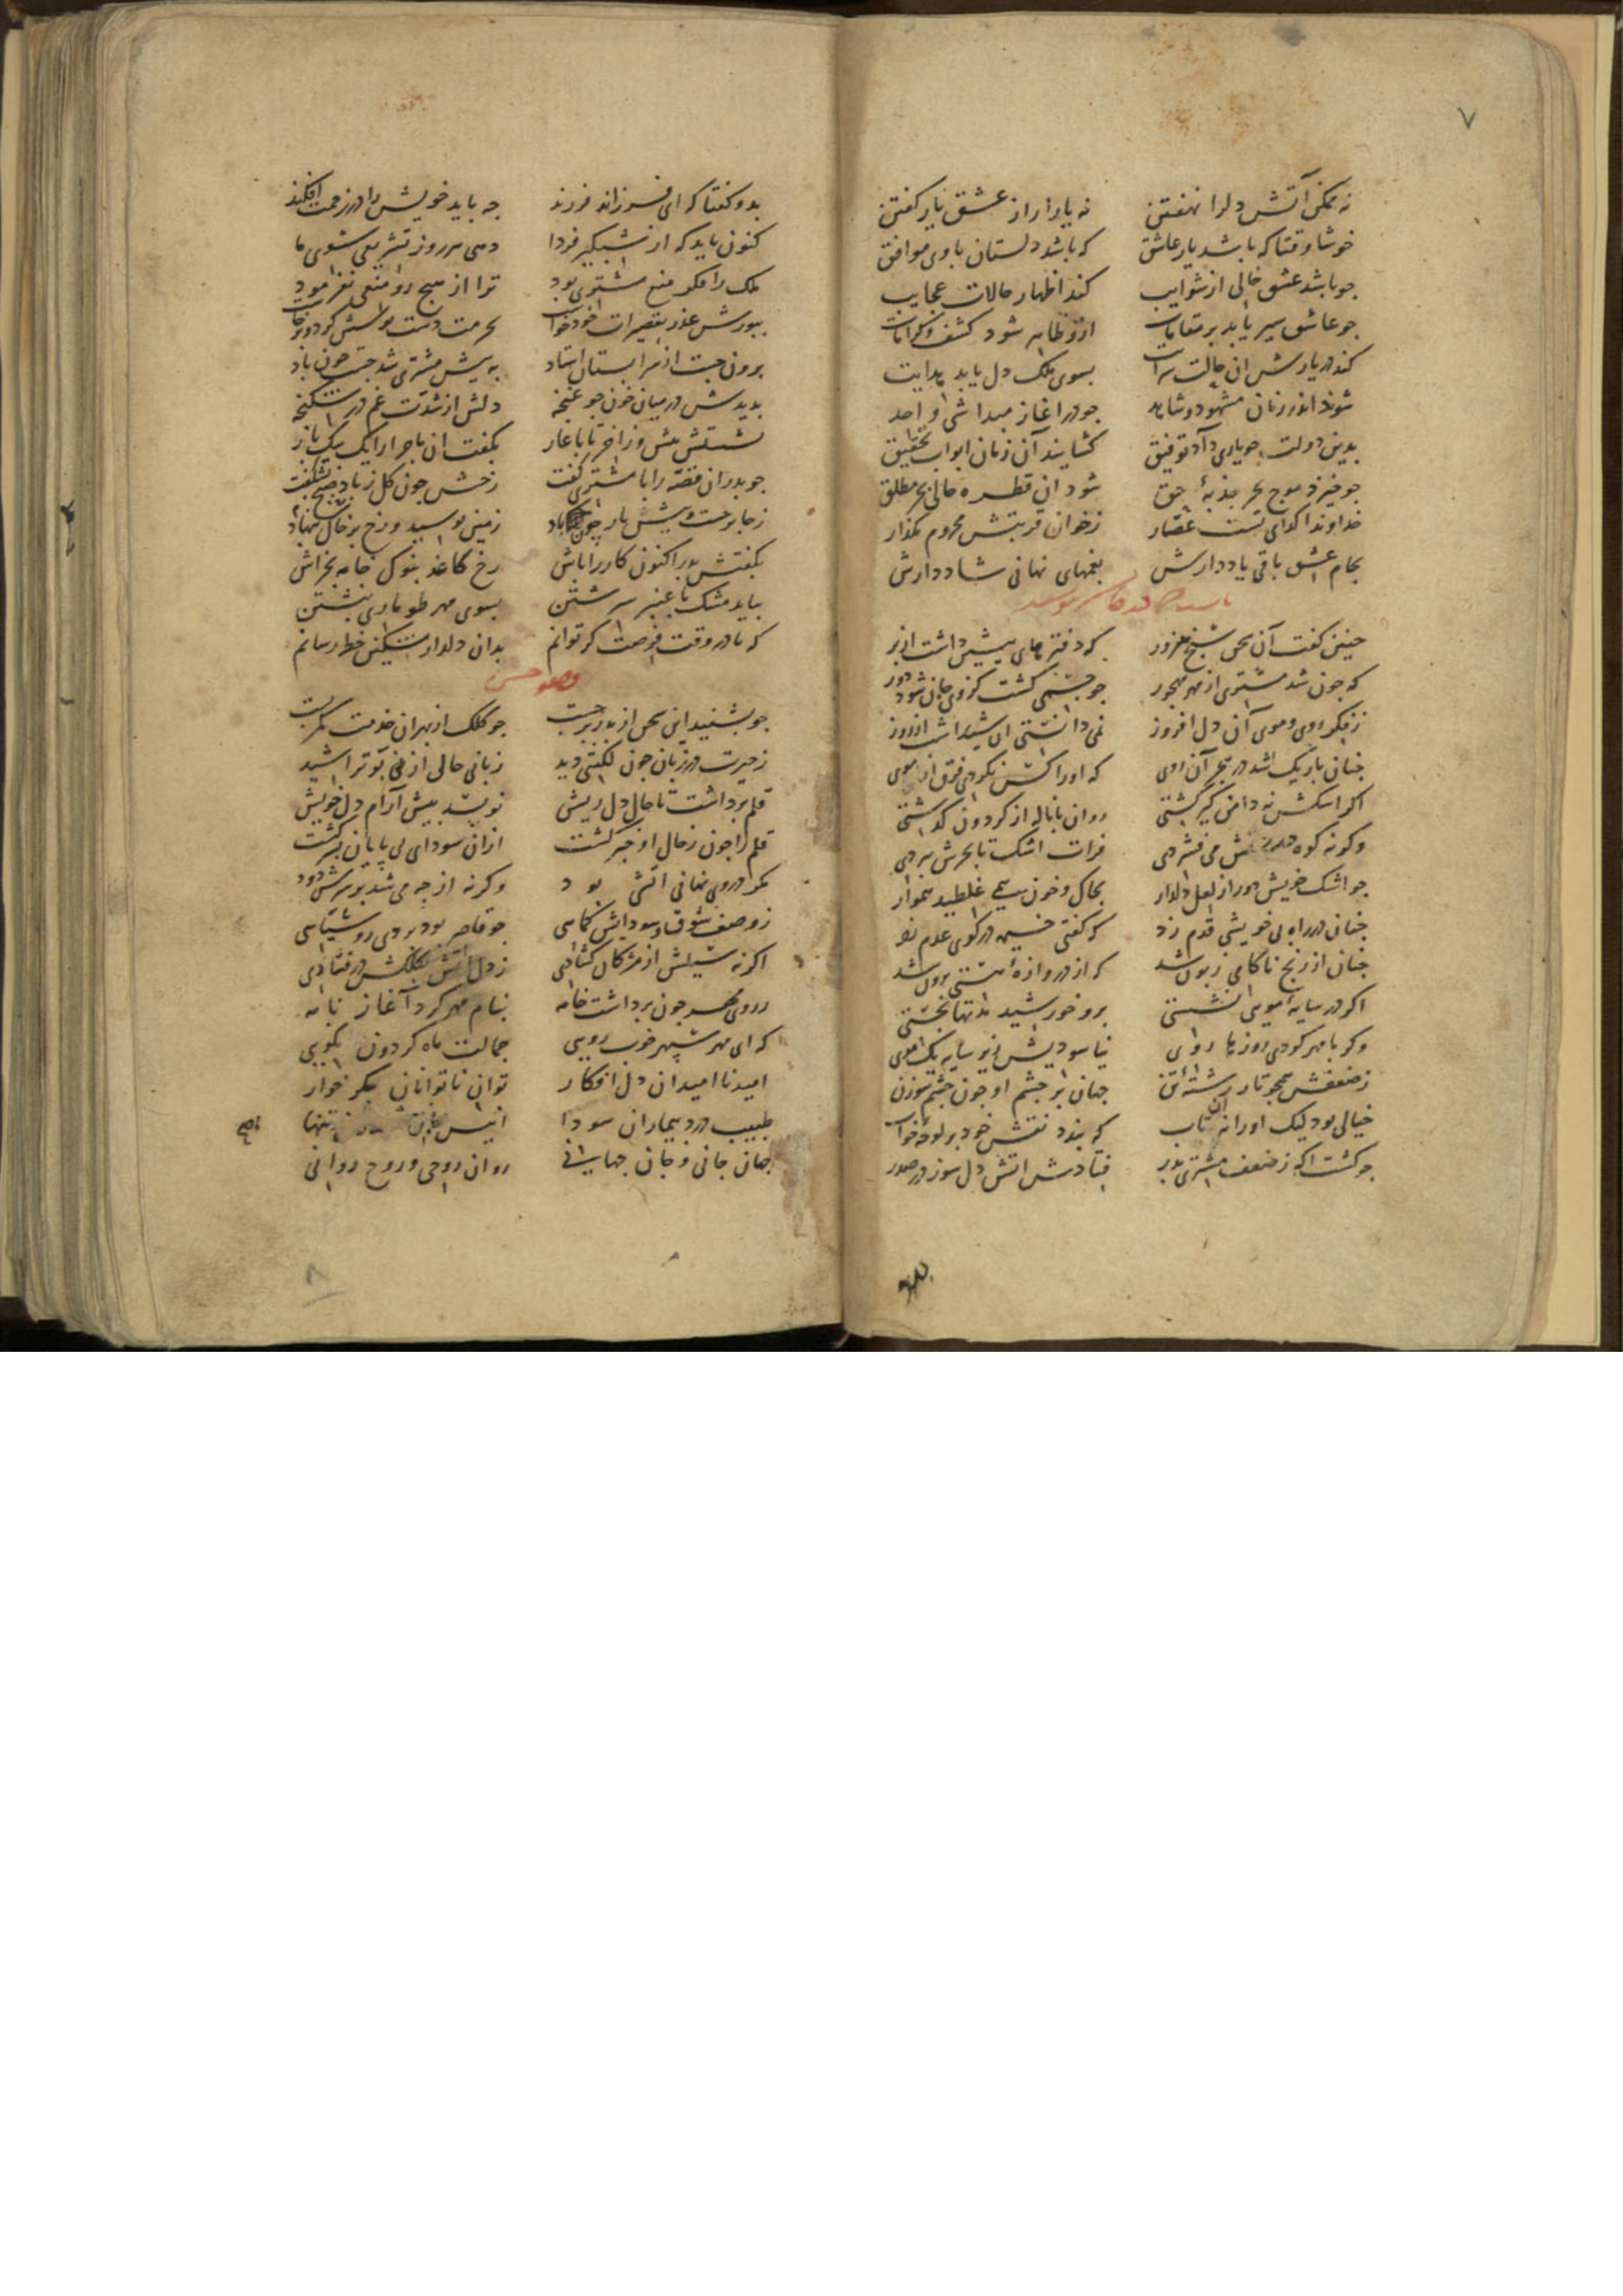 ۷
نه ممکن آتش دلرا نهفتن نه یارا راز عشق یار کفتن
خوشا وقتا که باشد یار عاشق که باشد دلستان با وی موافق
جو باشد عشق خالی از شوایب کند اظهار حالات عجایب
جو عاشق سیر یابد بر مقامات ازو ظاهر شود کشف و کرامات
کند در یارش ان حالت سرایت بسوی ملک دل یابد هدایت
شوند اندر زمان مشهود و شاهد جو در اغاز مبدا شی واحد
بدین دولت جو یاری داد توفیق کشایند آن زمان ابواب تحقیق
جو خیزد موج بحر جذبهٔ حق شود ان قطره حالی بحر مطلق
خداوندا کدای تست عصار زخوان قربتش محروم مکذار
بجام عشق باقی یاد دارش بغمهای نهانی شاد دارش
جنین کفت آن سخن سنج هنرور که دفترهای پیشین داشت ازبر
که جون شد مشتری از مهر مهجور جو جسمی کشت کزوی جان شود دور
زفکر روی و موی آن دل افروز نمی دانستی ای شیدا شب از روز
جنان باریک شد در هجر آن روی که اورا کس نکردی فرق از موی
اکر اشکش نه دامن کیر کشتی روان با ناله از کردون کذشتی
وکر نه کوه می فشردی فرات اشک تا بحرش ببردی
جو اشک خویش دور از لعل دلدار بخاک و خون همی غلطید
جنان در راه بی خویشی قدم زد که کفتی خیمه در کوی عدم زد
جنان از رنج ناکامی زبون شد که از دروازهٔ هستی برون شد
اکر در سایه مویی نشستی برو خورشید مدتها نجستی
وکر با مهر کردی روزها روی نیاسودیش زیر سایه یک موی
زضعفش همجو تار رشتهٔ تن جهان بر جشم او جون جشم سوزن
خیالی بود لیک اورا نه ان تاب که بندد نقش خود بر لوح خواب
جو کشت اکه زضعف مشتری بدر فتادش اتش دل سوز در صدر
بدو کفتا که ای فرزانه فرزند جه باید خویش را در زحمت افکند
کنون باید که از شبکیر فردا دهی هر روز تشریفی سوی ما
ملک را فکر منع مشتری بود ترا از هیج رو منعی نفرمود
بپورش عذر تقصیرات خود خواست بحرمت دست بوسش کرد و برخاست
برون جست از سرابستان استاد به پیش مشتری شد جست جون باد
بدیدش در میان خون جو غنجه دلش از شدت غم در شکنجه
نشستش پیش وز اخر تا باغاز بکفت ان ماجرا را یک بیک باز
جو بدر ان قصه را با مشتری کفت رخش جون کل زباد صبح بشکفت
زجا برجست پیش یار جون باد زمین بوسید و رخ بر خاک بنهاد
بکفتش بدر اکنون کار را باش رخ کاغذ بنوک خامه بخراش
بباید مشک با عنبر سرشتن بسوی مهر طوماری نبشتن
که تا در وقت فرصت کر توانم بدان دلدار سنکین خط رسانم
جو بشنید این سخن از بدر برجست جو کلک از بهر ان خدمت کمر بست
زحیرت در زبان جون لکنتی دید زبانی حالی از نی نو تراشید
قلم برداشت تا حال دل ریش نویسد پیش آرام دل خویش
قلم را جون زحال او خبر کشت ازان سودای بی پایان کشت
مکر در وی نهانی اتشی بود وکرنه از جه می شد بر سرش دود
زوصف شوق و سودایش کماهی جو قاصر بود بردی رو سیاهی
اکرنه سیلش از مژکان کشادی زدل اتش در فتادی
روی مهر جون برداشت خامه بنام مهر کرد آغاز نامه
که ای مهر سپهر خوب رویی جمالت ماه کردون نکویی
امید نا امیدان دل افکار توان ناتوانان جکر خوار
طبیب درد بیماران سودا انیس تنها
جهان جانی و جان جهانی روان روحی و روح روانی
۸